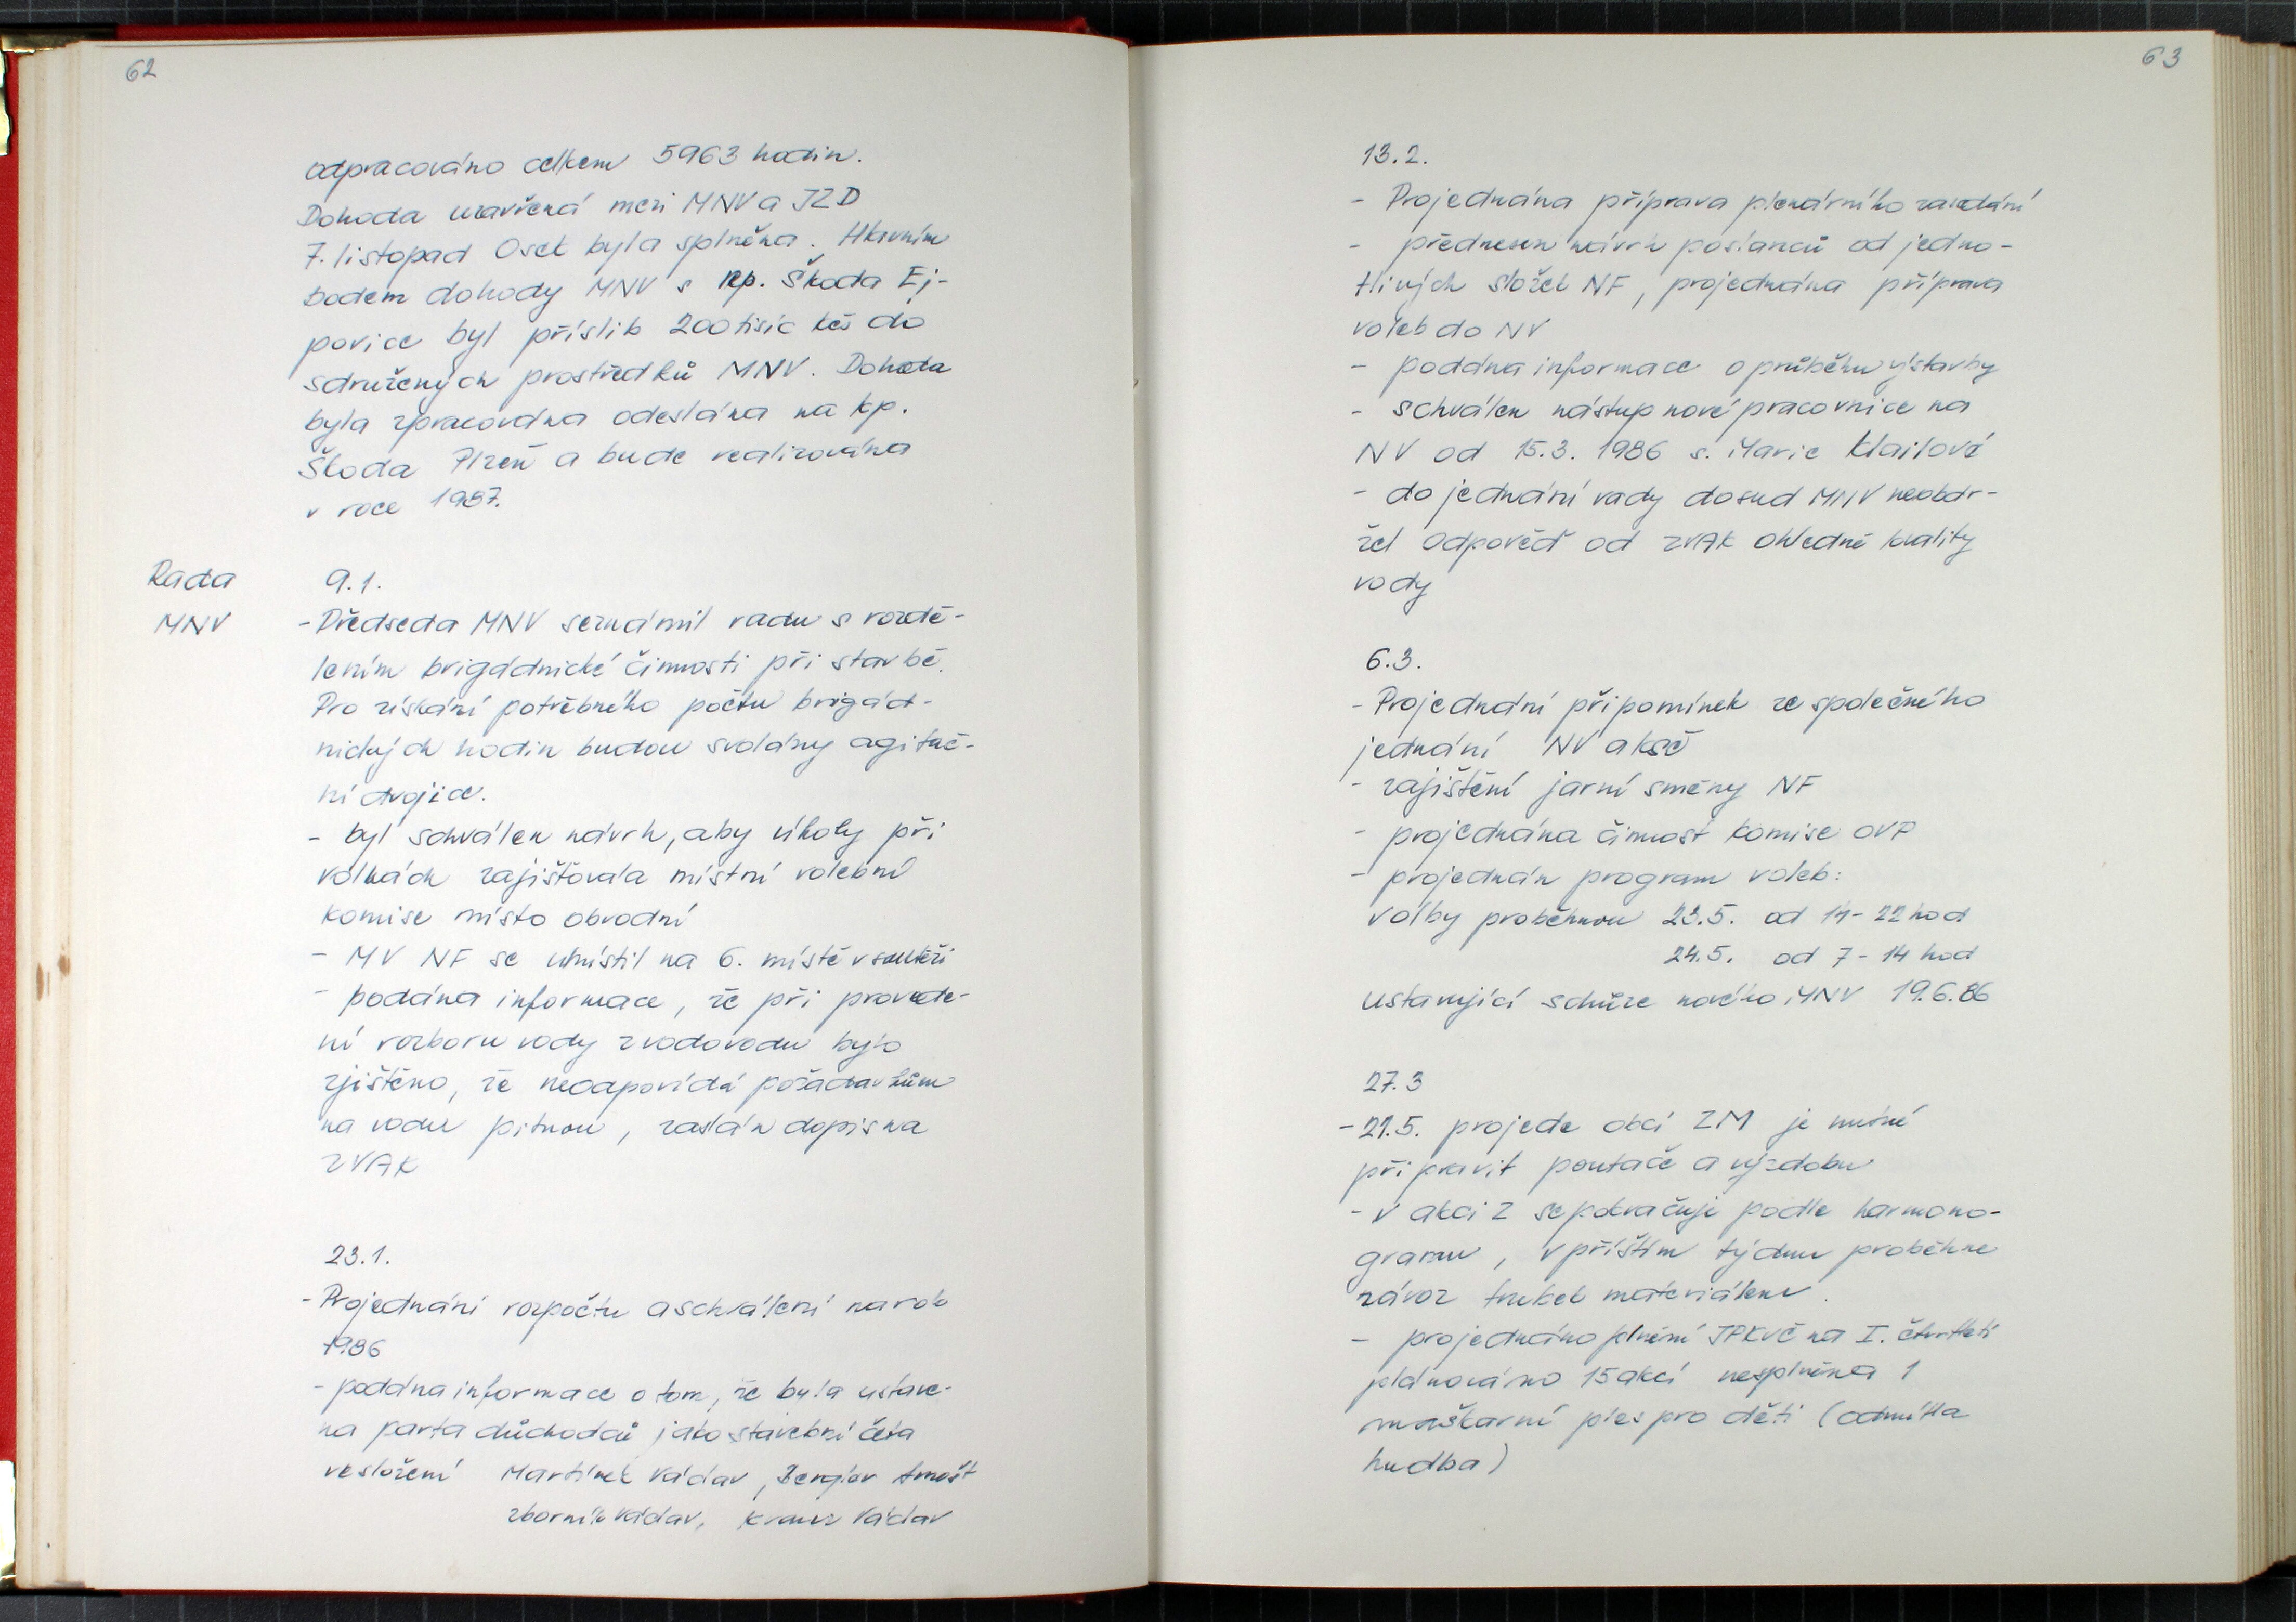 62
odpracováno celkem 5963 hodin.
Dohoda uzavřená mezi MNV a JZD
7. listopad Osek byla splněna. Hlavním
bodem dohody MNV s kp. Škoda Ej-
povice byl příslib 200 tisíc kčs do
sdružených prostředků MNV. Dohoda
byla zpracována odeslána na kp.
Škoda Plzeň a bude realizována
v roce 1987.
Rada
MNV
9.1.
- Předseda MNV seznámil radu s rozdě-
lením brigádnické činnosti při stavbě.
Pro získání potřebného počtu brigád-
nických hodin budou svolány agitač-
ní dvojice.
- byl schválen návrh, aby úkoly při
volbách zajišťovala místní volební
komise místo obvodní
- MV NF se umístil na 6. místě v soutěži
- podána informace, že při provede-
ní rozboru vody z vodovodu bylo
zjištěno, že neodpovídá požadavkům
na vodu pitnou, zaslán dopis na
ZVAK
23.1.
- Projednání rozpočtu a schválení na rok
1986
- podána informace o tom, že byla ustave-
na parta důchodců jako stavební četa
ve složení Martínek Václav, Arnošt
Zborník Václav, Kraus Václav
63
13.2.
- Projednána příprava plenárního zasedání
- přednesen návrh poslanců od jedno-
tlivých složek NF, projednána příprava
voleb do NV
- podána informace o průběhu výstavby
- schválen nástup nové pracovnice na
NV od 15.3. 1986 s. Marie Klailové
- do jednání rady dosud MNV neobdr-
žel odpověď od ZVAK ohledně kvality
vody
6.3.
- Projednání připomínek ze společného
jednání NV a ksč
- zajištění jarní směny NF
- projednána činnost komise OVP
- projednán program voleb:
volby proběhnou 23.5. od 14-22 hod
24.5. od 7-14 hod
ustavující schůze nového MNV 19.6.86
27.3
- 21.5. projede obcí ZM je nutné
připravit poutače a výzdobu
- v akci Z se pokračuje podle harmono-
gramu, v příštím týdnu proběhne
závoz trubek materiálem.
- projednáno plnění JPKVČ na I. čtvrtletí
plánováno 15 akcí nesplněna 1
maškarní ples pro děti (odmítla
hudba)